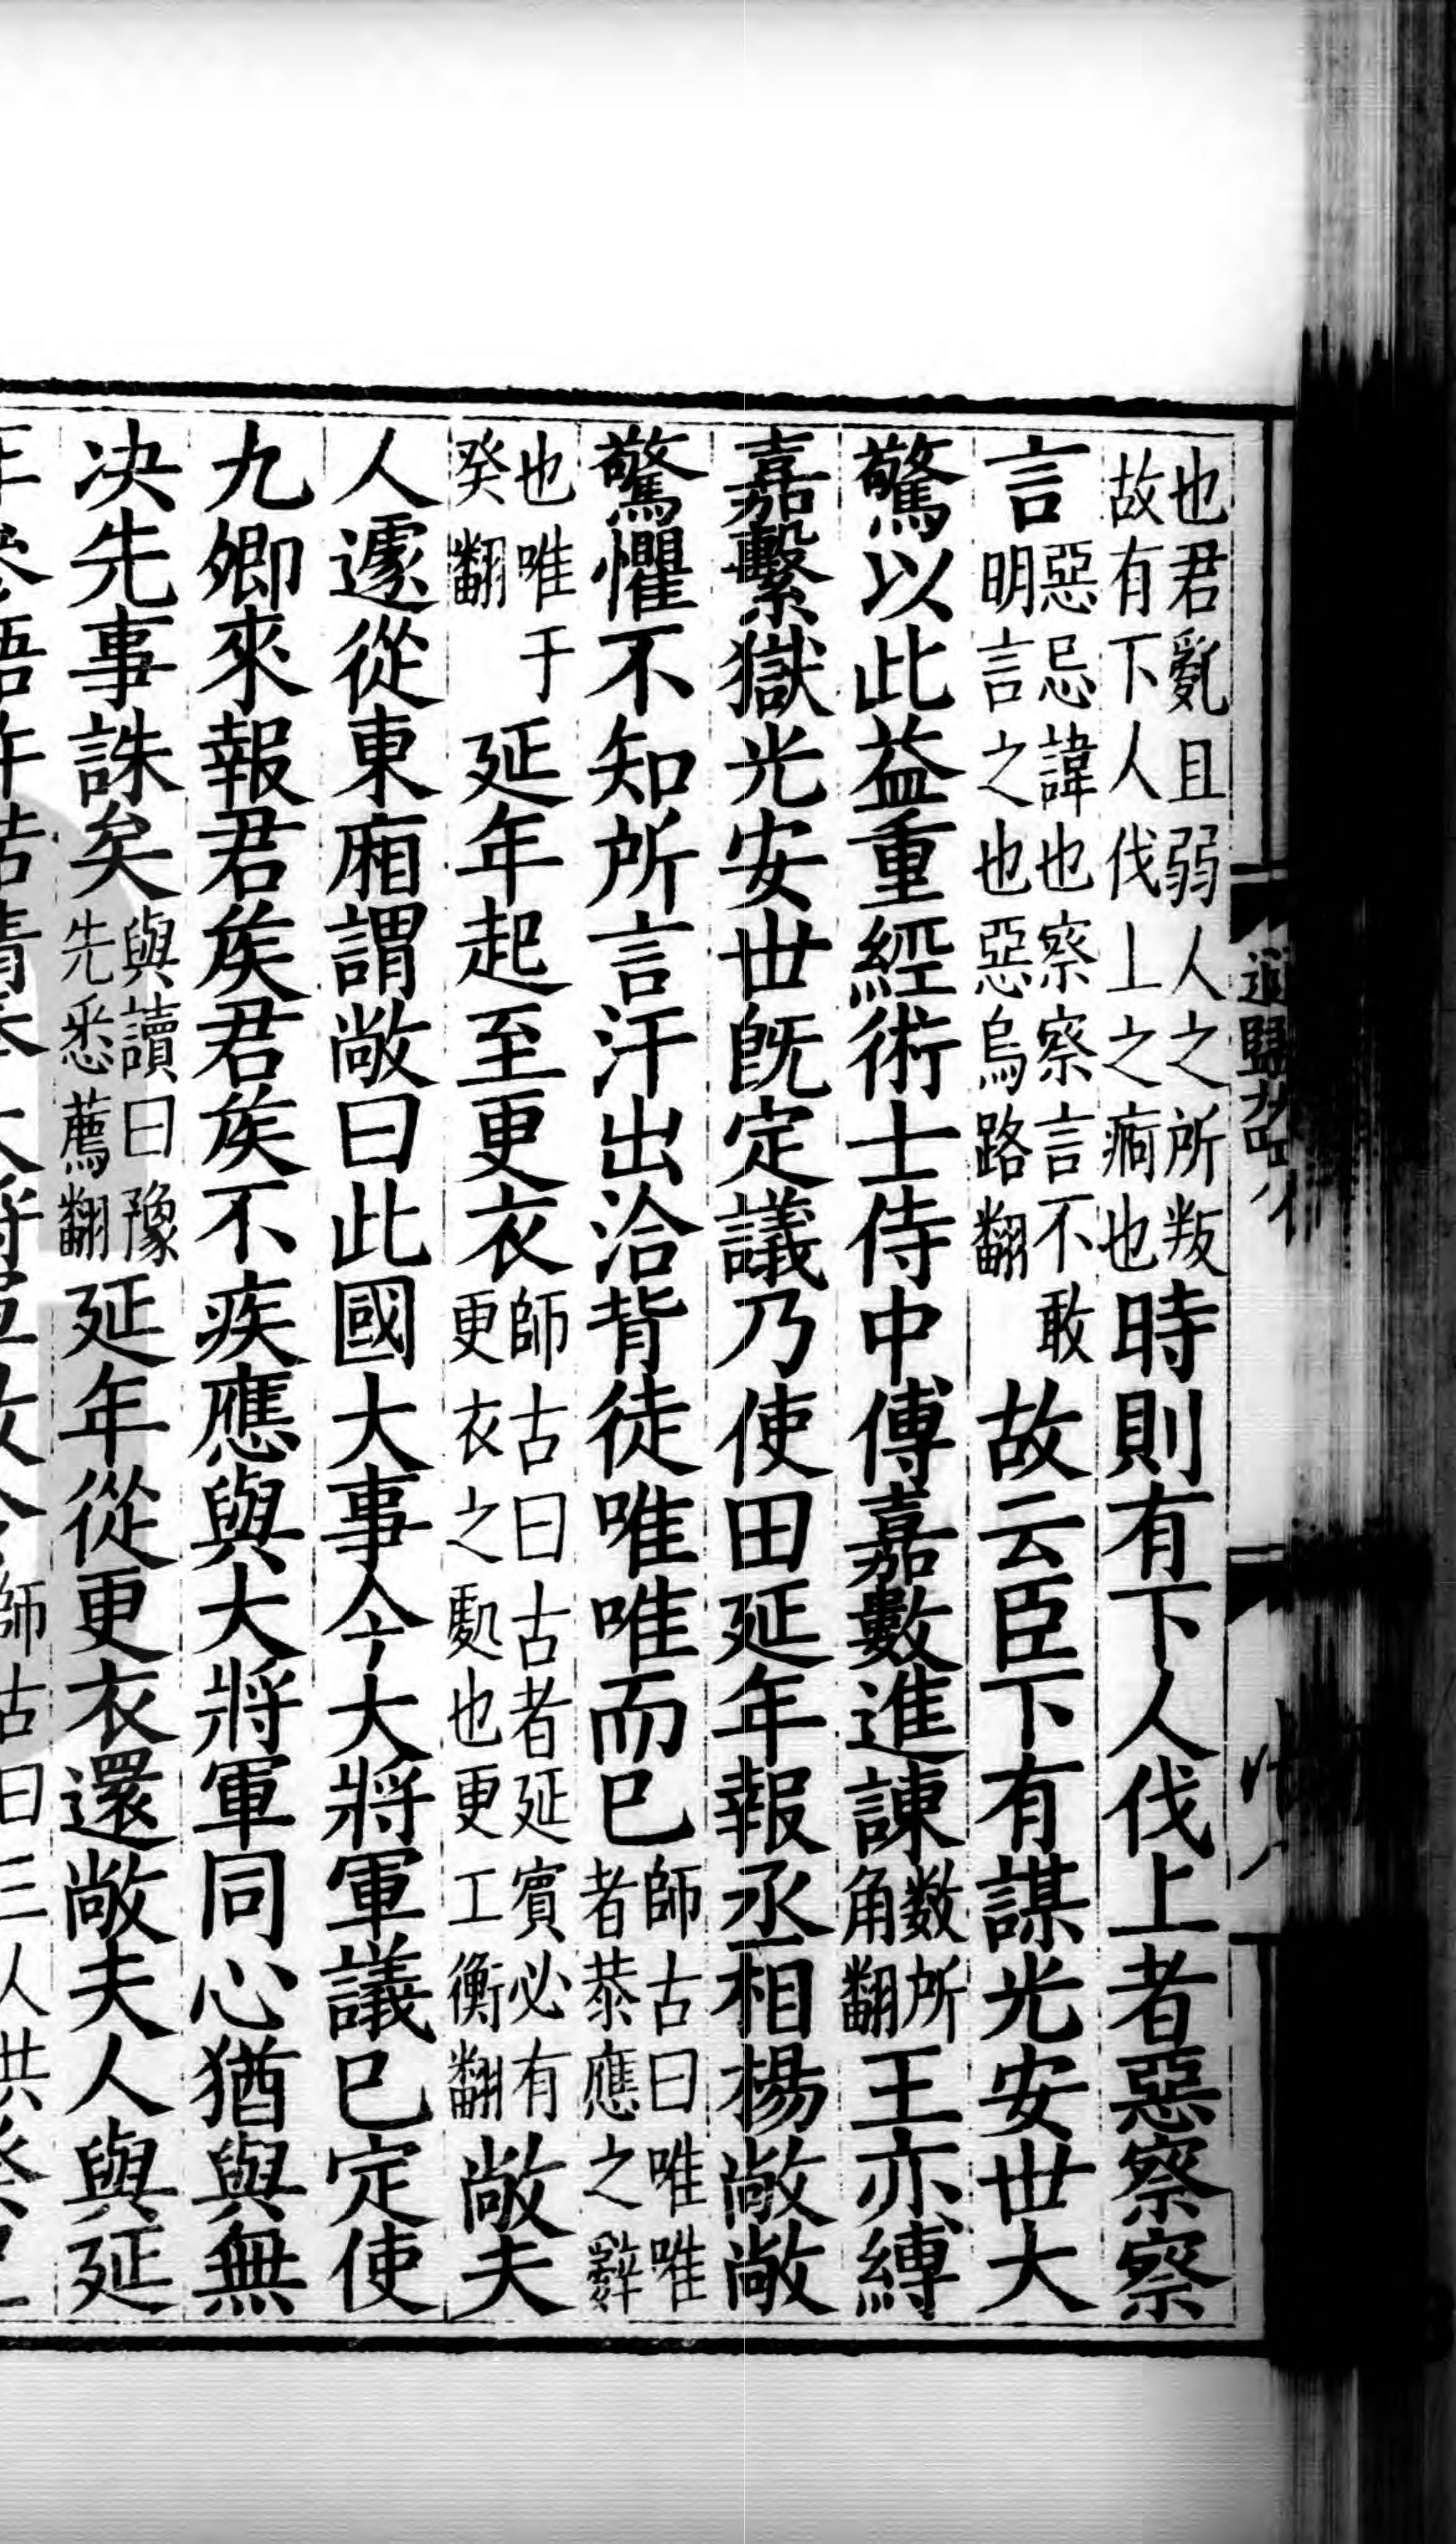 也君亂且弱人之所叛故有下人伐上之痾也時則有下人伐上者惡察察
言惡忌諱也察察言不敢明言之也惡烏路翻故云臣下有謀光安世大
驚以此益重經術士侍中傅嘉數進諫数所角翻王亦縛
嘉繫獄光安世旣定議乃使田延年報丞相楊敞敞
驚懼不知所言汗出洽背徒唯唯而已師古曰唯唯者恭應之辭
也唯于癸翻延年起至更衣師古曰古者延賓必有更衣之處也更工衡翻敞夫
人遽從東廂謂敞曰此國大事今大將軍議已定使
九卿來報君矦君矦不疾應與大將軍同心猶與無
决先事誅矣與讀曰豫先悉薦翻延年從更衣還敞夫人與延
年參語許諾請奉大將軍教令師古曰三人共